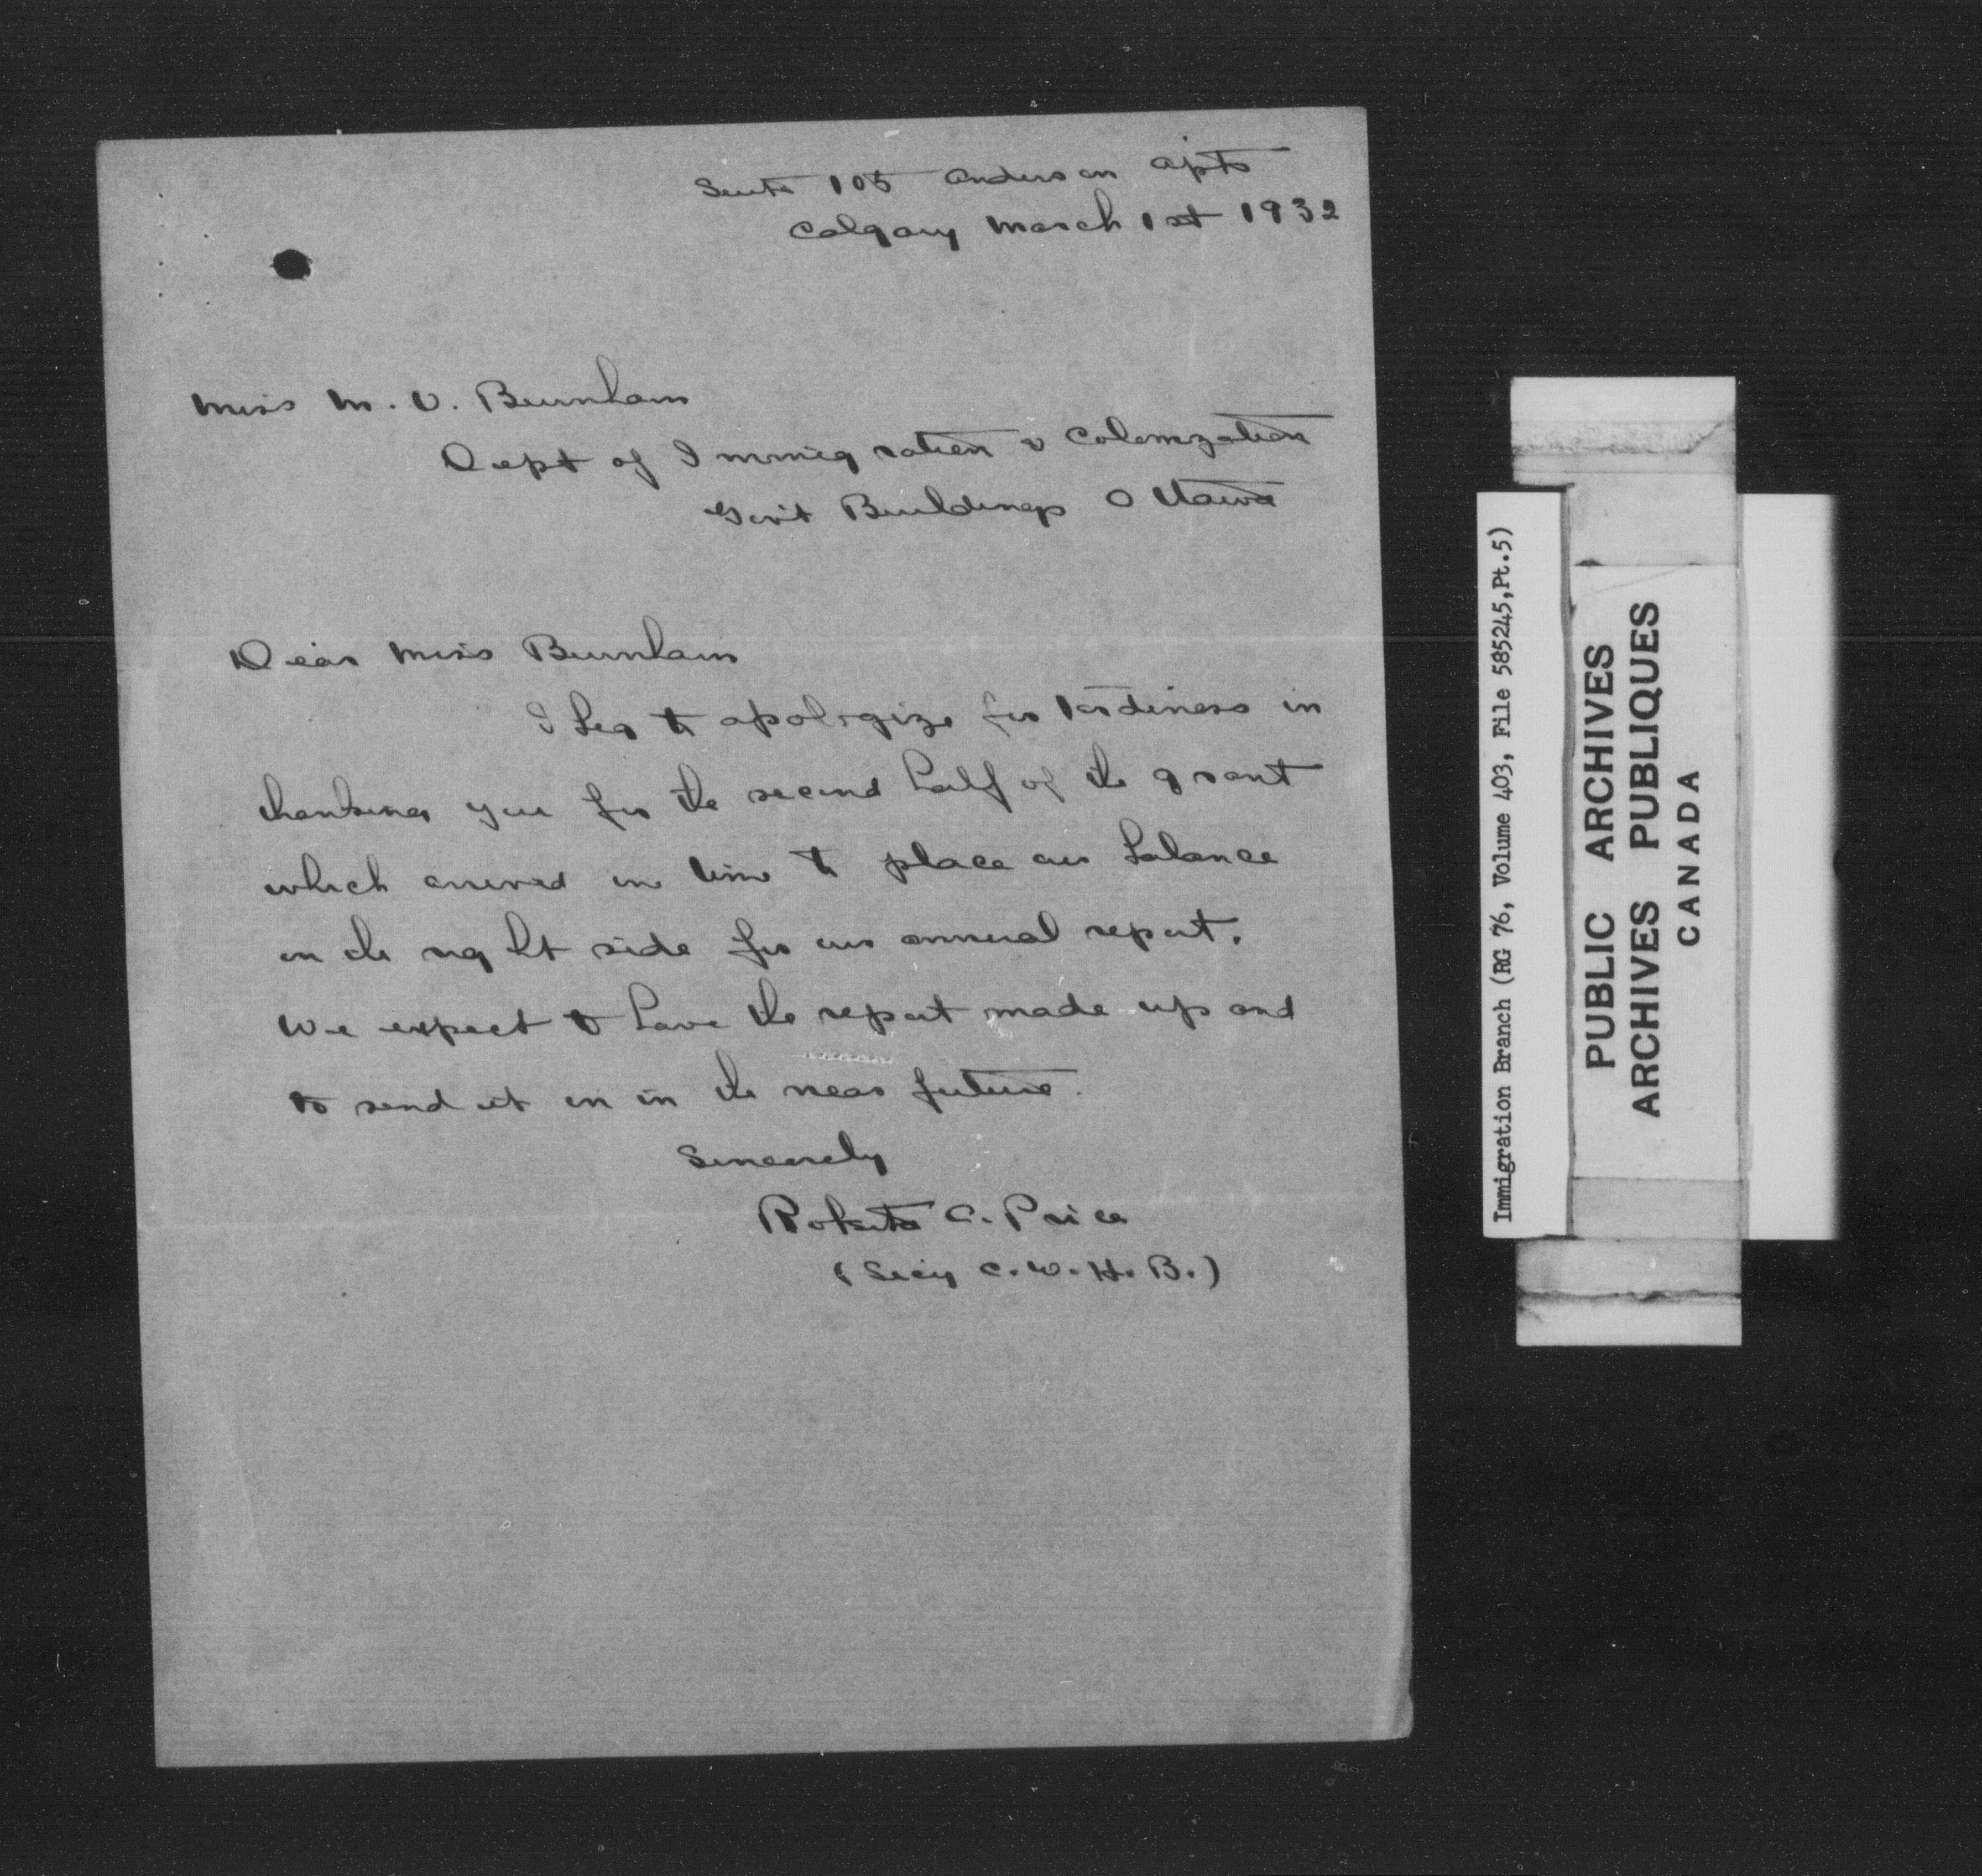 Suite 105 Anderson Apts
Calgary March 1st 1932
Miss M. V. Burnham
Dept of Immigration & Colonization
Gov't Buildings Ottawa
Dear Miss Burnham
I beg to apologize for tardiness in
thanking you for the second half of the grant
which arrived in time to place our balance
on the right side for our annual report.
We expect to have the report made up and
to send it on in the near future.
Sincerely
Roberta C. Price
(Secy C.W.H.B.)
Immigration Branch (RG 76, Volume 403, File 585245,Pt.5)
PUBLIC ARCHIVES
ARCHIVES PUBLIQUES
CANADA